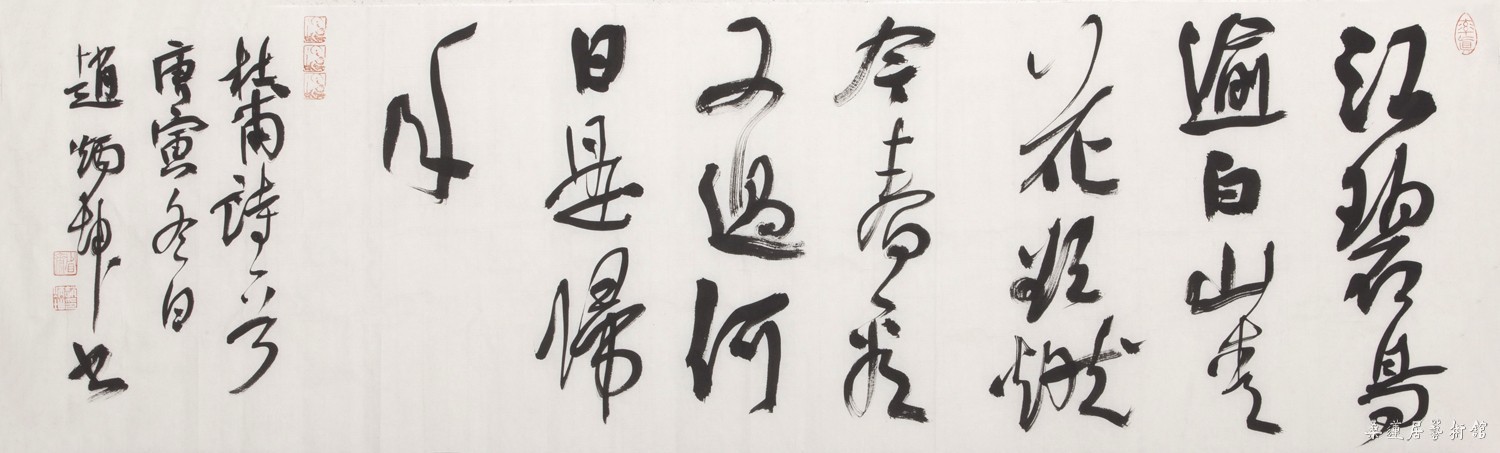 江碧鳥
逾白山青
花欲燃
今春看
又過何
日是歸
年
杜甫詩一首
庚寅冬日
趙炳坤书
桑蓮居藝術館